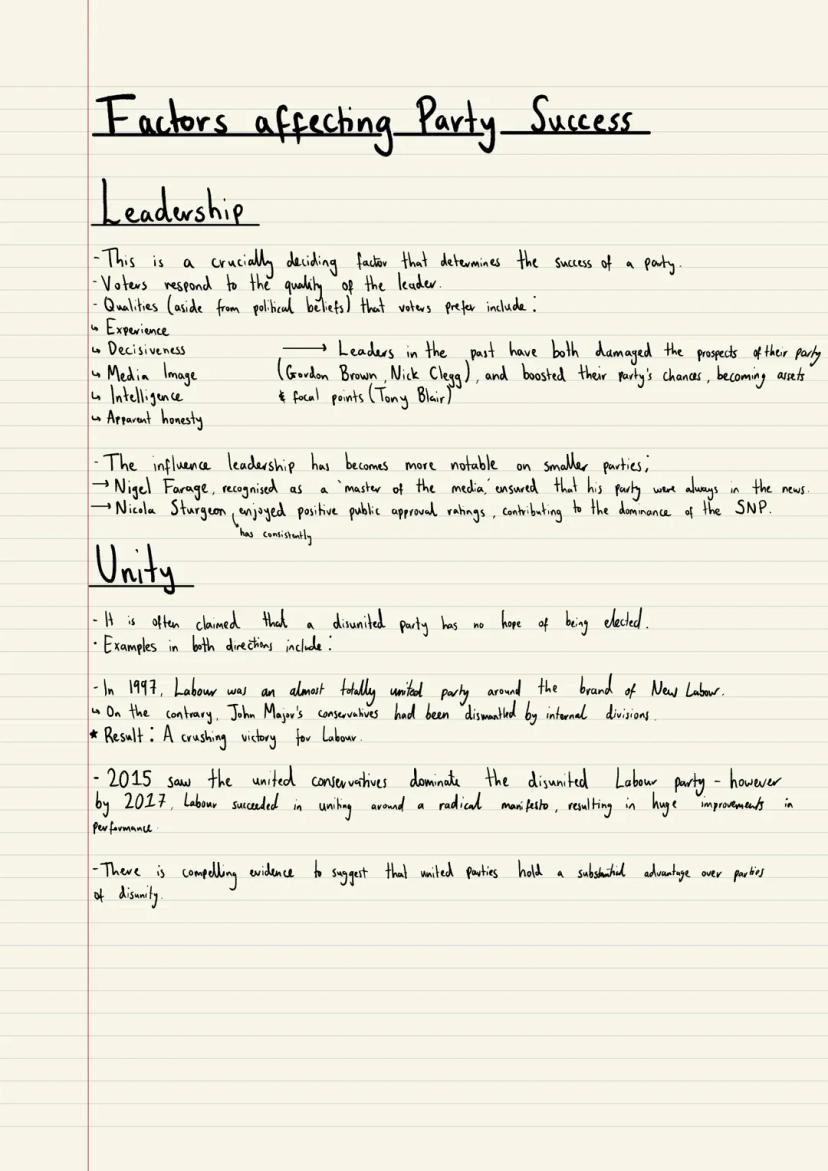 Factors affecting Party Success
Leadership
- This is a crucially deciding factor that determines the success of a party.
- Voters respond to the quality of the leader.
- Qualities (aside from political beliefs) that voters prefer include:
↳ Experience
↳ Decisiveness
↳ Media Image
↳ Intelligence
↳ Apparent honesty
→ Leaders in the past have both damaged the prospects of their party
(Gordon Brown, Nick Clegg), and boosted their party's chances, becoming assets
& focal points (Tony Blair)
- The influence leadership has becomes more notable on smaller parties;
→ Nigel Farage, recognised as a 'master of the media,' ensured that his party were always in the news.
→ Nicola Sturgeon, enjoyed positive public approval ratings, contributing to the dominance of the SNP.
has consistently
Unity
- It is often claimed that a disunited party has no hope of being elected.
· Examples in both directions include:
- In 1997, Labour was an almost totally united party around the brand of New Labour.
↳ On the contrary, John Major's conservatives had been dismantled by internal divisions.
* Result: A crushing victory for Labour.
- 2015 saw the united conservatives dominate the disunited Labour party - however
by 2017, Labour succeeded in uniting around a radical manifesto, resulting in huge improvements in
performance.
- There is compelling evidence to suggest that united parties hold a substantial advantage over parties
of disunity.